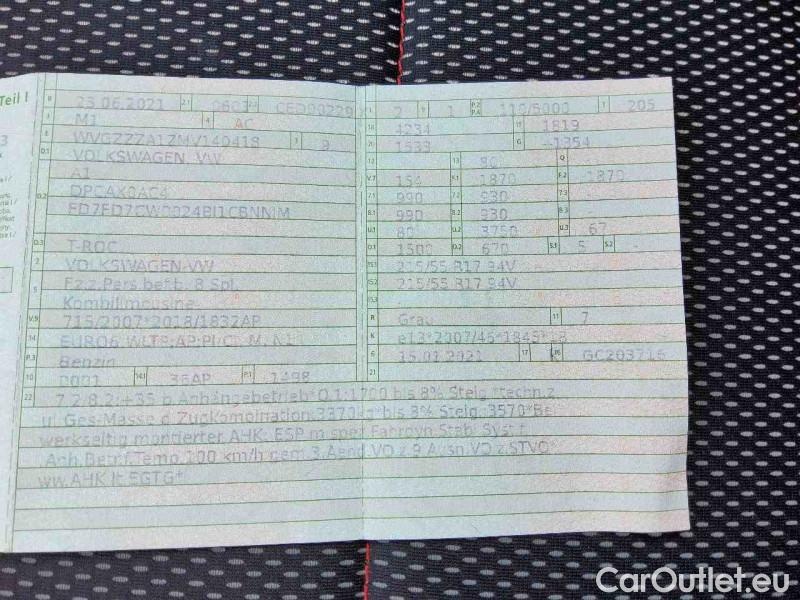 Teil I
B 23.06.2021 2.1 0603 2.2 CED00229
J M1 4 AC
E WVGZZZA1ZMV140418 3 9
D.1 VOLKSWAGEN, VW
A1
D.2 DPCAX0AC4
FD7FD7CW0024BI1CBNNIM
D.3 T-ROC
2 VOLKSWAGEN-VW
5 Fz.z.Pers.bef.b. 8 Spl.
Kombilimousine
V.9 715/2007*2018/1832AP
14 EURO6 WLTP;AP;PI/CI; M, N1
P.3 Benzin
10 0001 14.1 36AP P.1 1498
L 2 9 1 P.2 P.4 110/5000 T 205
18 4234 19 1819
20 1533 G 1354
12 13 80 Q
V.7 154 F.1 1870 F.2 1870
7.1 990 7.2 930
8.1 990 8.2 930
U.1 80 U.2 3750 U.3 67
O.1 1500 O.2 670 S.1 5 S.2 -
15.1 215/55 R17 94V
15.2 215/55 R17 94V
15.3
R Grau 11 7
K e13*2007/46*1845*
6 15.01.2021 17 K 16 GC203716
22 7.2/8.2:+35 b.Anhängebetrieb*O.1:1700 bis 8% Steig.*techn.z
ul. Ges-Masse d.Zugkombination:3370kg*bis 8% Steig.:3570*
werkseitig montierter AHK: ESP m.spez.Fahrdyn.Stab.Syst.f.
Anh.Betr.f.Temp.100 km/h gem.3.Aend.VO z.9.Ausn.VO z.STVO*
ww.AHK lt.EGTG*
CarOutlet.eu